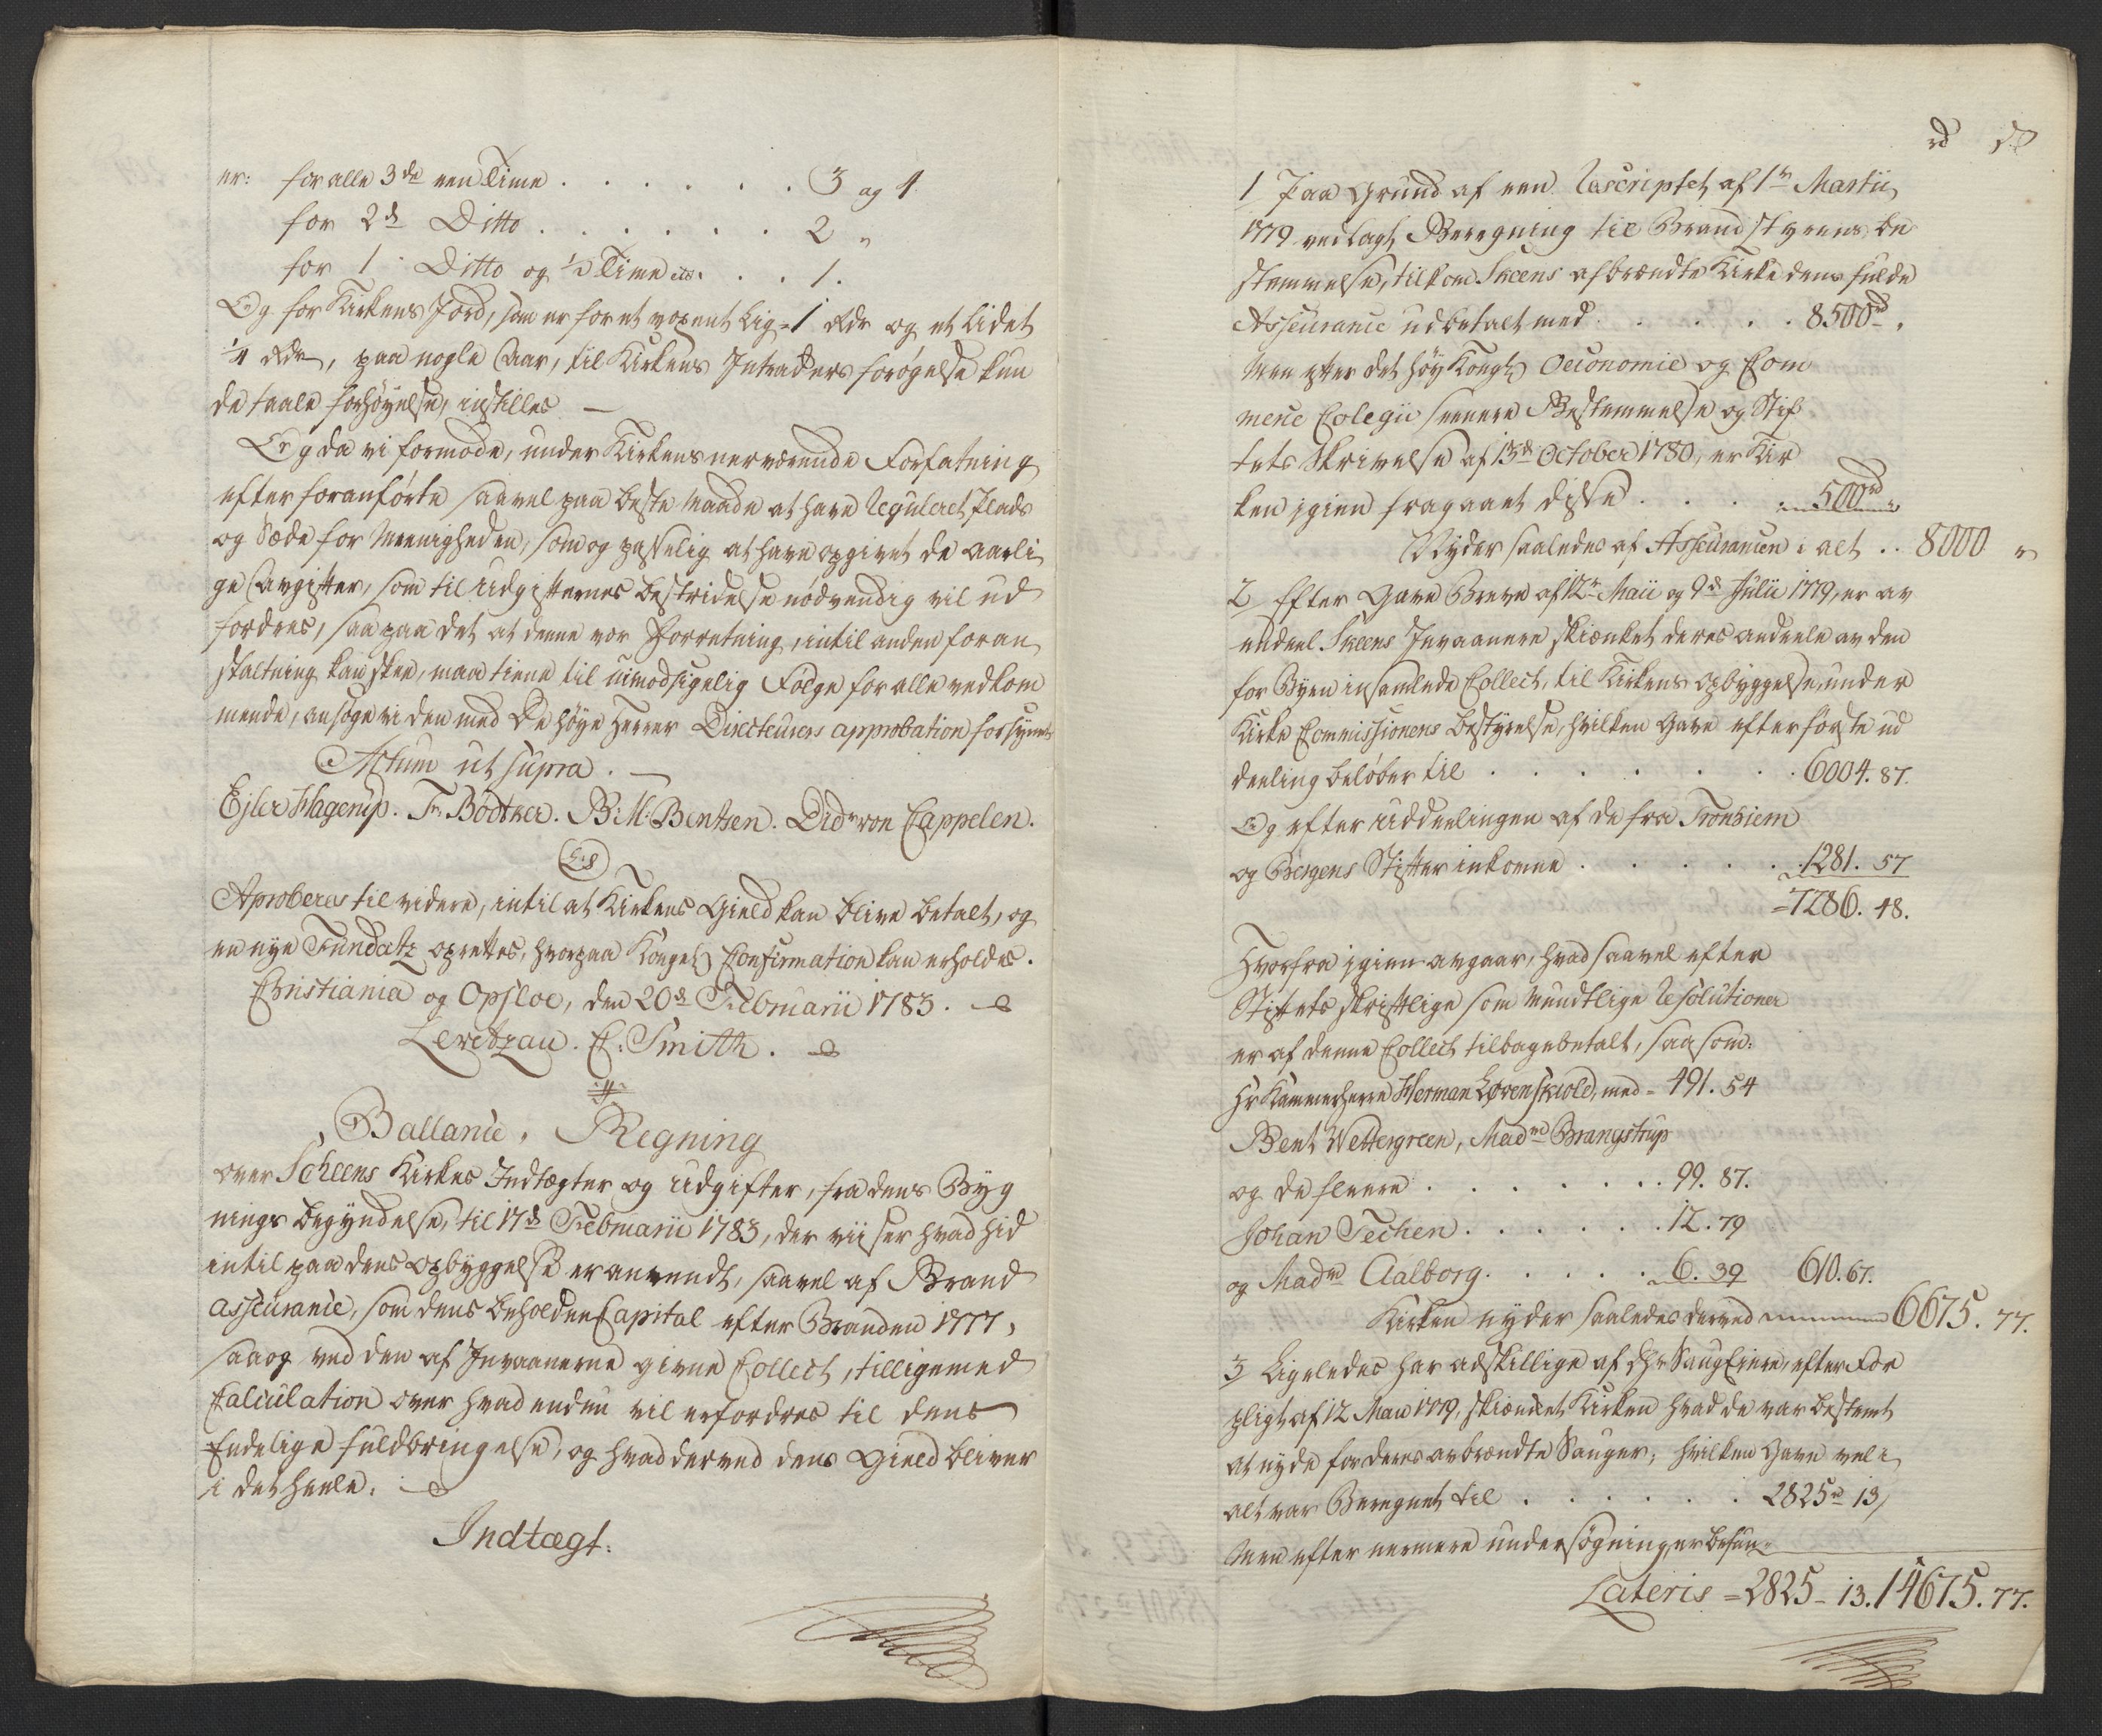 er: for alle 3de een Time . . . . . . . 3 ag 4
for 2de Ditto . . . . . . . 2 "
for 1 Ditto og ½ Time etc: . . . 1.
Og for Kirkens Jord, som er for et voxent Lig = 1 Rdr og et Lidet
¼ Rdr, paa nogle Aar, til Kirkens Intraders forøgelse kun
de taale forhøyelse, instilles —
Og da vi formode, under Kirkens nerværende Forfatning
efter foranførte saavel paa beste Maade at have Reguleret Plads
og Sæde for Meenigheden, som og passelig at have opgivet de aarli
ge Avgifter, som til Udgifternes bestridelse nødvendig vil ud
fordres, saa paa det at denne vor Forretning, intil anden foran
staltning kan skee, maa tiene til uimodsigelig Følge for alle vedkom
mende, ansøge vi den med De høye Herrer Directeurers approbation forsynet
Actum ut supra. —
Ejler Hagerup. Fr: Bødtker. B: M: Bentsen. Didr von Cappelen.
L:S
Aproberes til videre, intil at Kirkens Gield kan blive betalt, og
en nye Fundatz oprettes, hvorpaa Kongel: Confirmation kan erholdes.
Christiania og Opsloe, den 20de Februarii 1783.
Levetzau. C: Smith.
Ballance, Regning
over Scheens Kirkes Indtægter og Udgifter, fra dens Byg
nings begyndelse, til 17de Februarii 1783, der viiser hvad hid
intil paa dens Opbyggelse er anvendt, saavel af Brand
asseurance, som dens beholdne Capital efter Branden 1777,
saa og ved den af Invaanerne givne Collect, tilligemed
Calculation over hvad endnu vil erfordres til dens
Endelige fuldbringelse, og hvad derved dens Gield bliver
i det heele.
Indtægt.
rd ß
1 Paa Grund af een Rescriptet af 1te Martii
1779 vedlagt Beregning til Brandstyrens be
stemmelse, tilkom Skeens afbrændte Kirke dens fulde
Asseurance udbetalt med . . . . . . 8500rd,
Men efter det høy Kongl: Oeconomie og Com
merce Colegii seenere Bestemmelse og Stif
tets Skrivelse af 13de October 1780, er Kir
ken igien fragaaet disse . . . . . 500rd "
Nyder saaledes af Asseurancen i alt . . 8000 "
2 Efter Gave Breve af 12te Maii og 9de Julii 1779, er av
endeel Skeens Invaanere skiænket deres andeele av den
for Byen insamlede Collect, til Kirkens Opbyggelse, under
Kirke Commissionens bestyrelse, hvilken Gave efter første ud
deeling beløber til . . . . . . . 6004. 87.
Og efter Uddeelingen af de fra Tronhiem
og Bergens Stifter inkomne . . . . . . 1281. 57
= 7286. 48.
Hvorfra igien avgaar, hvad saavel efter
Stiftets skriftlige som Mundtlige Resolutioner
er af denne Collect tilbagebetalt, saasom:
Hr Kammerherre Herman Løvenskiold, med = 491. 54
Bent Wettergreen, Madme Brangstrup
og de fleere . . . . . . . 99. 87.
Johan Techen . . . . . . 12. 79
og Madme Aalborg . . . . . 6. 39 610. 67.
Kirken nyder saaledes derved 6675. 77.
3 Ligeledes har adskillige af Dhr Saug Eiere, efter For
pligt af 12 Maii 1779, skiænket Kirken hvad de var bestemt
at nyde for deres avbrændte Sauger; hvilken Gave vel i
alt var Beregnet til . . . . . . . 2825rd 13,
Men efter nermere undersøgning er befun=
Lateris = 2825 - 13. 14675. 77.